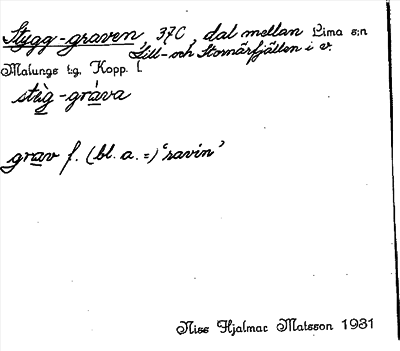 Stygg-graven, 37C, dal mellan Lima s:n
Lill- och Stornärfjällen i v.
Malungs t:g, Kopp. l.
stìg-gráva
grav f. (bl. a. =) 'ravin'
Niss Hjalmar Matsson 1931